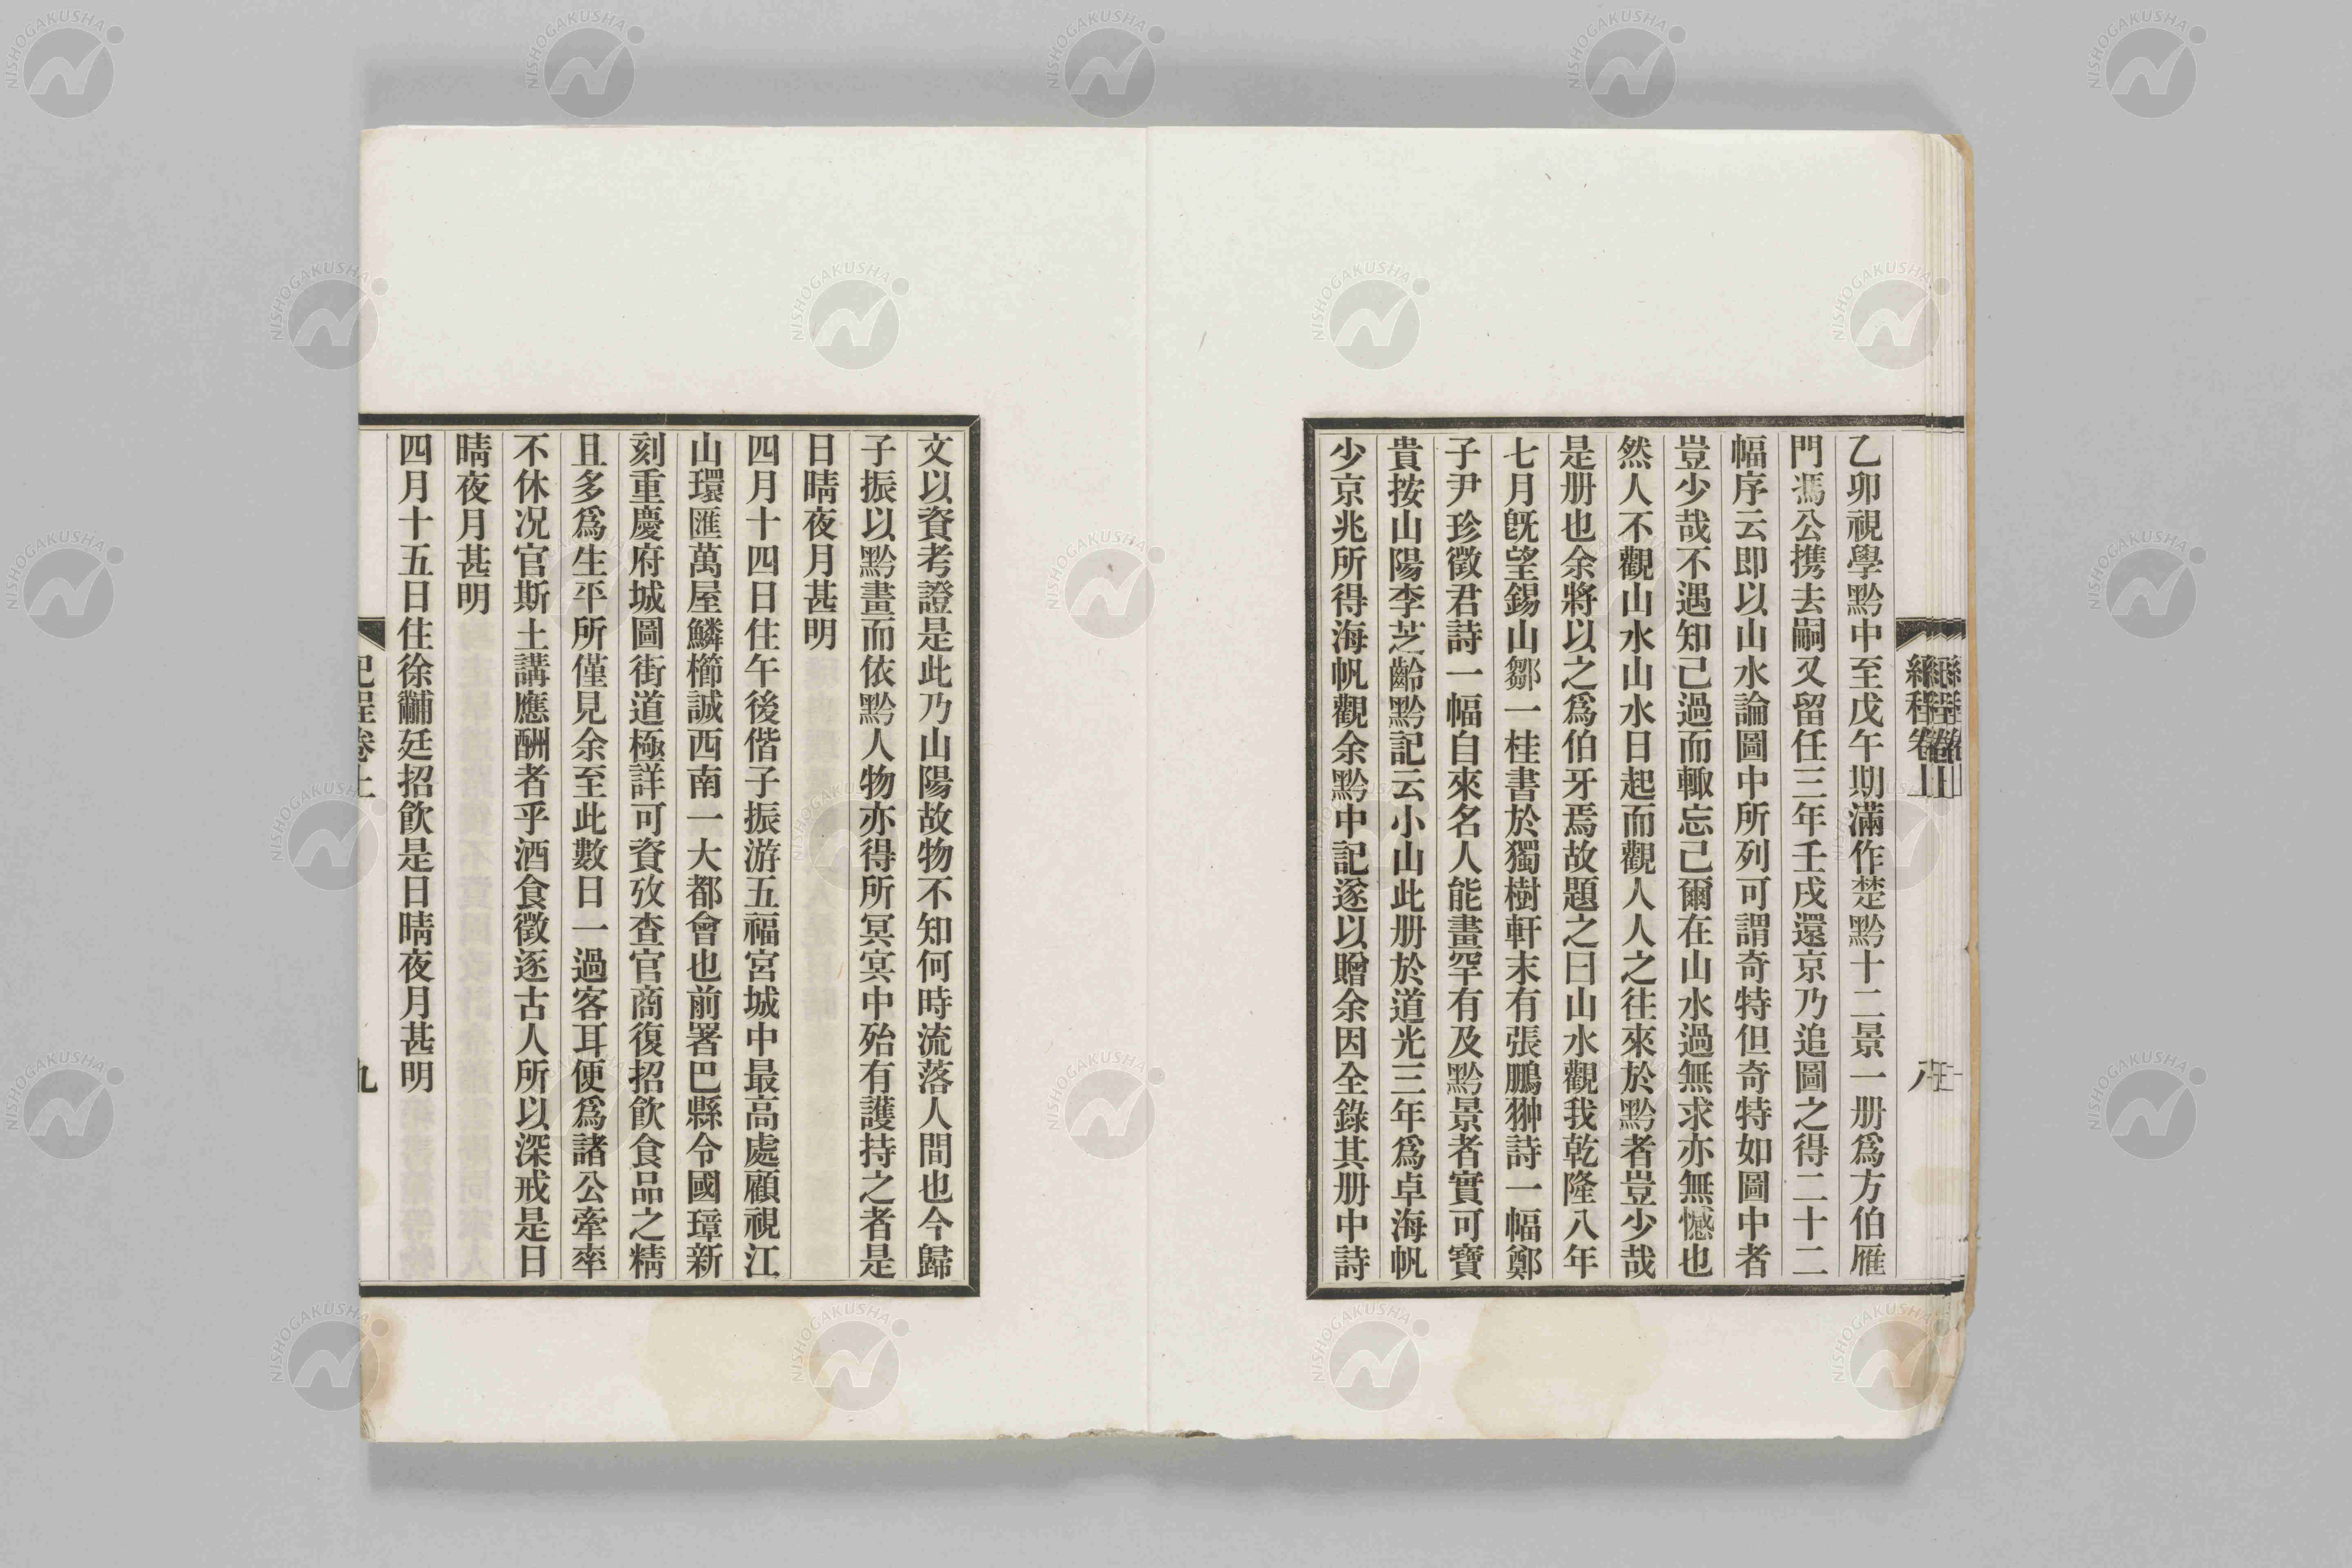 乙卯視學黔中至戊午期滿作楚黔十二景一册爲方伯雁
門馮公携去嗣又留任三年壬戌還京乃追圖之得二十二
幅序云即以山水論圖中所列可謂奇特但奇特如圖中者
豈少哉不遇知己過而輙忘己爾在山水過無求亦無憾也
然人不觀山水山水日起而觀人人之往來於黔者豈少哉
是册也余將以之爲伯牙焉故題之曰山水觀我乾隆八年
七月旣望錫山鄒一桂書於獨樹軒末有張鵬翀詩一幅鄭
子尹珍徵君詩一幅自來名人能畫罕有及黔景者實可寶
貴按山陽李芝齡黔記云小山此册於道光三年爲卓海帆
少京兆所得海帆觀余黔中記遂以贈余因全錄其册中詩
文以資考證是此乃山陽故物不知何時流落人間也今歸
子振以黔畫而依黔人物亦得所冥冥中殆有護持之者是
日晴夜月甚明
四月十四日住午後偕子振游五福宮城中最高處顧視江
山環匯萬屋鱗櫛誠西南一大都會也前署巴縣令國璋新
刻重慶府城圖街道極詳可資攷查官商復招飲食品之精
且多爲生平所僅見余至此數日一過客耳便爲諸公牽率
不休况官斯土講應酬者乎酒食徵逐古人所以深戒是日
晴夜月甚明
四月十五日住徐黼廷招飲是日晴夜月甚明
紀程卷上
九
NISHOGAKUSHA